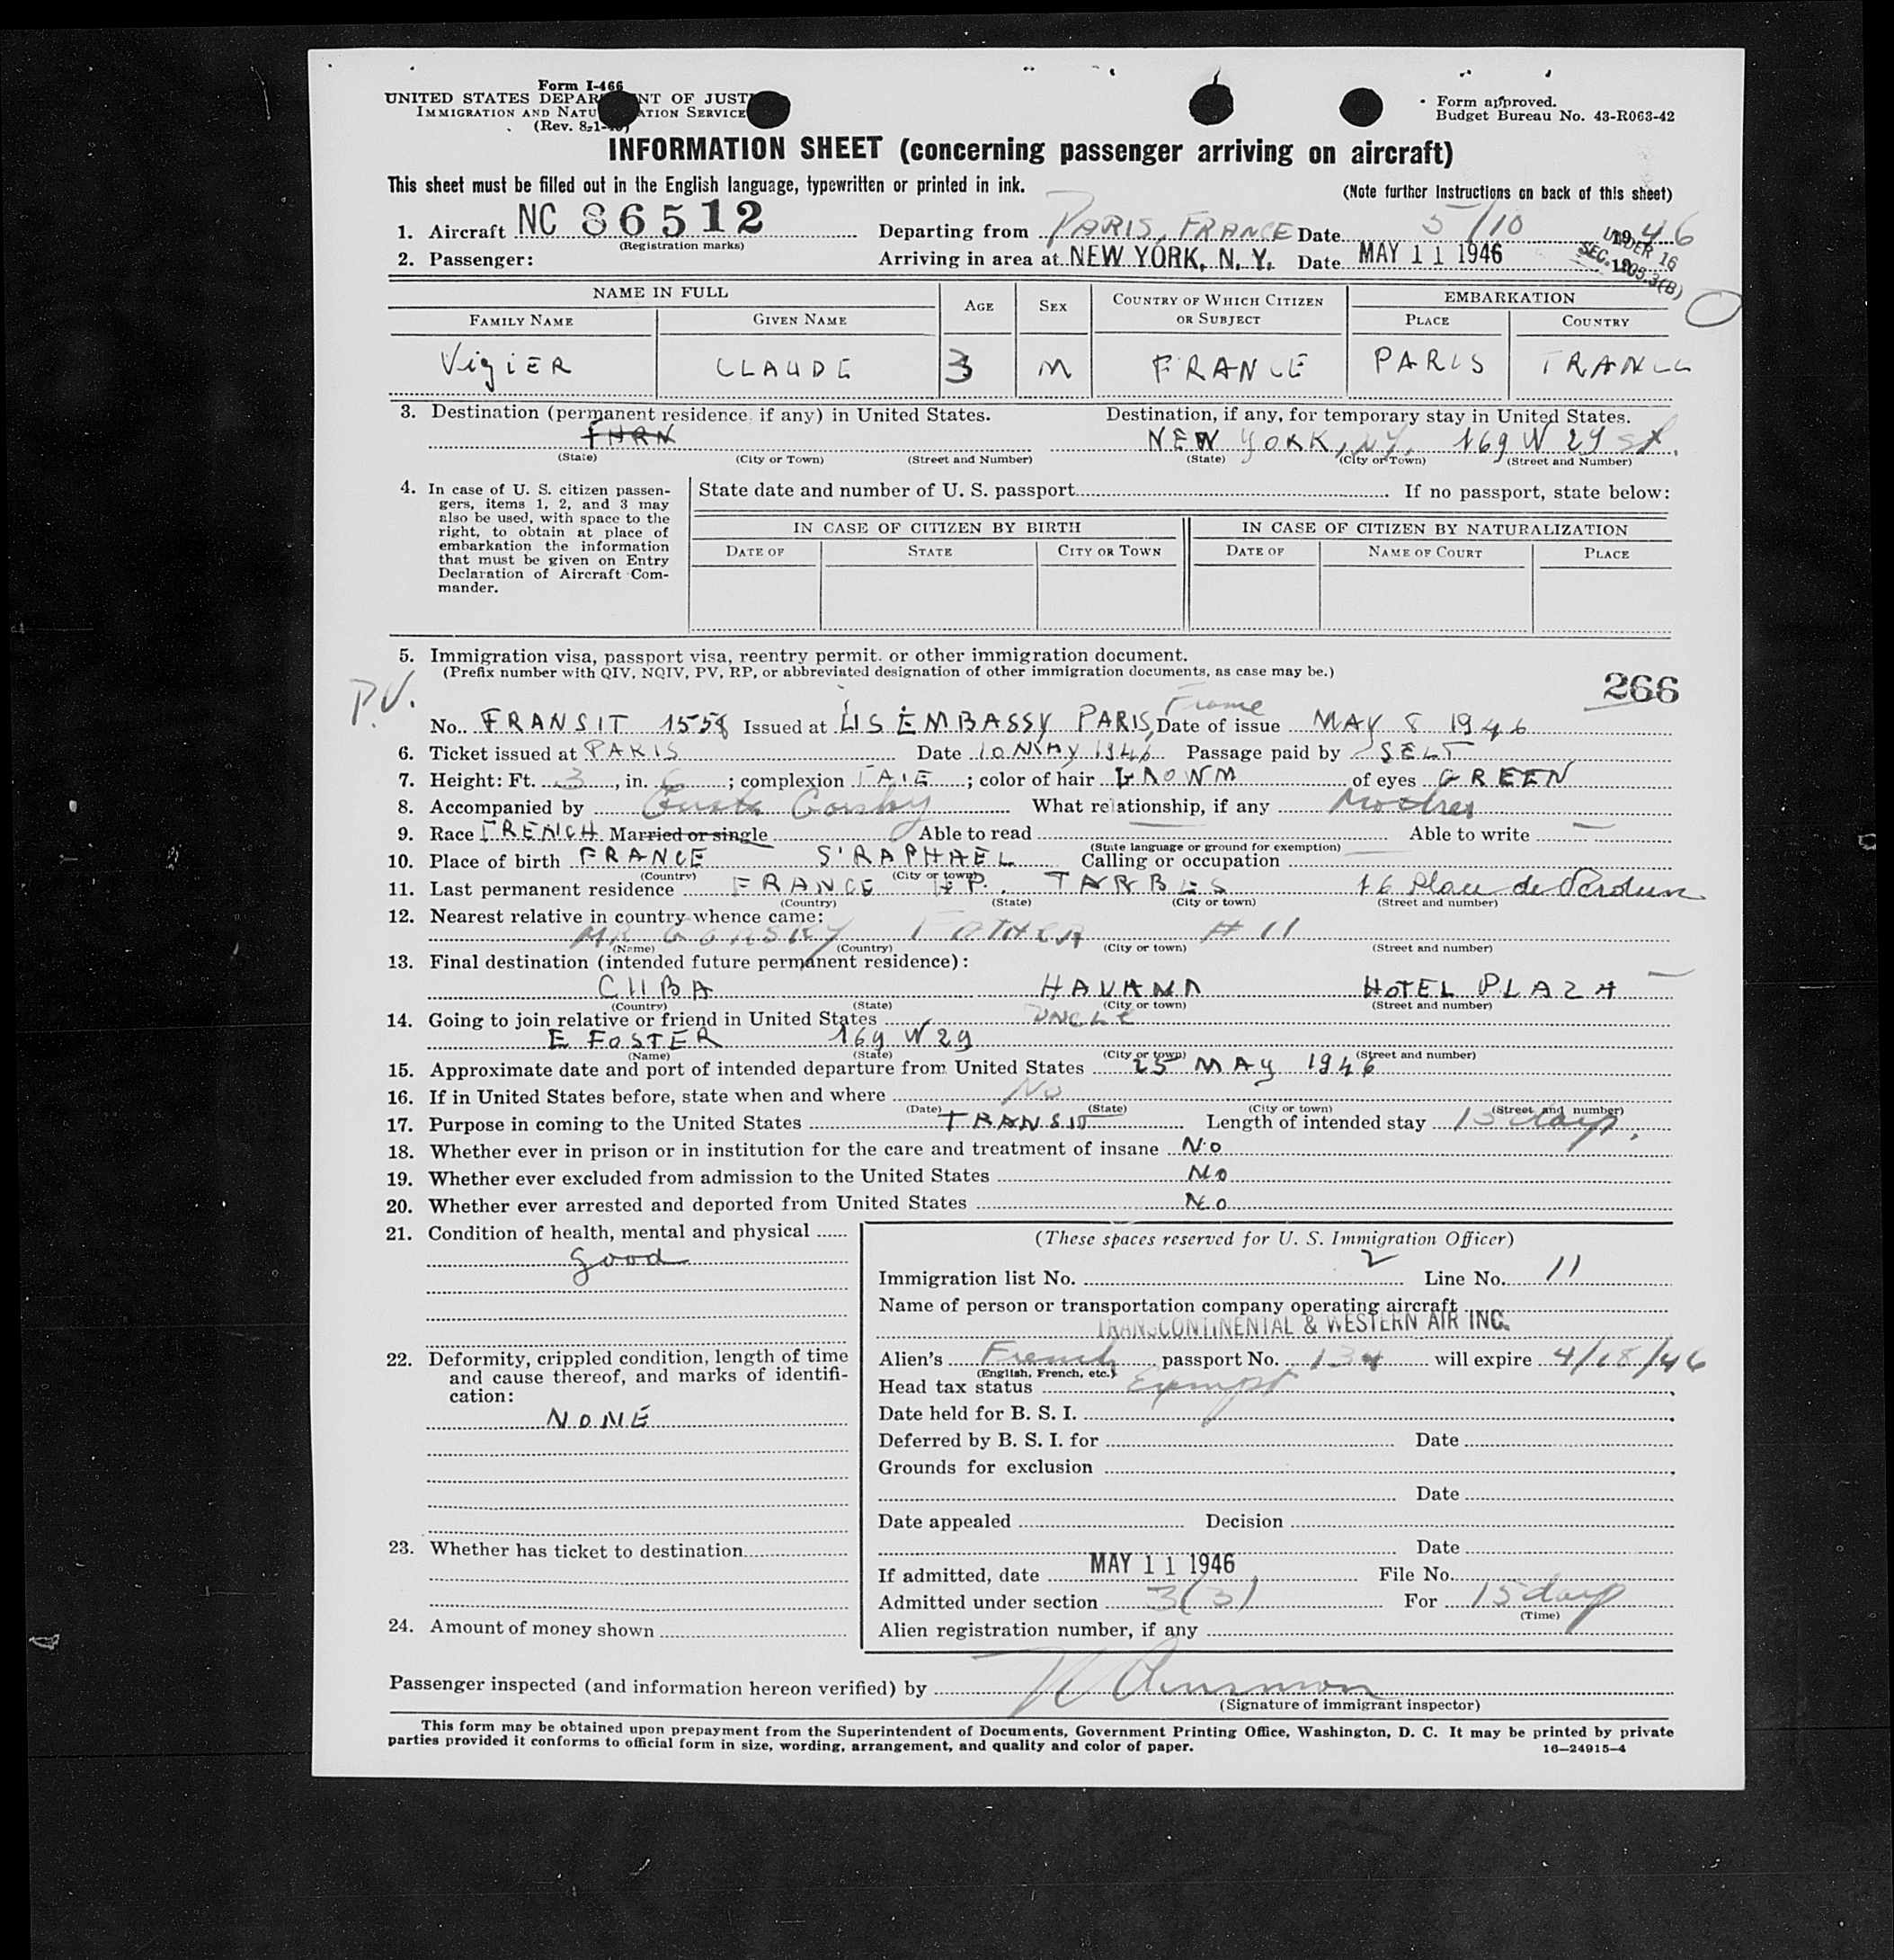 Form I-466
UNITED STATES DEPARTMENT OF JUSTICE
IMMIGRATION AND NATURALIZATION SERVICE
(Rev. 8-1-
Form approved.
Budget Bureau No. 43-R063-42
INFORMATION SHEET (concerning passenger arriving on aircraft)
This sheet must be filled out in the English language, typewritten or printed in ink.
(Note further Instructions on back of this sheet)
1. Aircraft NC 86512 Departing from PARIS, FRANCE Date 5/10 1946
(Registration marks)
UNDER 16
2. Passenger: Arriving in area at NEW YORK, N. Y. Date MAY 11 1946
NAME IN FULL AGE SEX COUNTRY OF WHICH CITIZEN OR SUBJECT EMBARKATION
FAMILY NAME GIVEN NAME PLACE COUNTRY
VigiER CLAUDE 3 M FRANCE PARIS FRANCE
3. Destination (permanent residence, if any) in United States. Destination, if any, for temporary stay in United States.
NEW YORK, NY. 169 W 29 st.
(State) (City or Town) (Street and Number) (State) (City or Town) (Street and Number)
4. In case of U. S. citizen passengers, items 1, 2, and 3 may also be used, with space to the right, to obtain at place of embarkation the information that must be given on Entry Declaration of Aircraft Commander.
State date and number of U. S. passport If no passport, state below:
IN CASE OF CITIZEN BY BIRTH IN CASE OF CITIZEN BY NATURALIZATION
DATE OF STATE CITY OR TOWN DATE OF NAME OF COURT PLACE
5. Immigration visa, passport visa, reentry permit, or other immigration document.
(Prefix number with QIV, NQIV, PV, RP, or abbreviated designation of other immigration documents, as case may be.)
266
P.V.
No. TRANSIT 1558 Issued at US EMBASSY PARIS, France Date of issue MAY 8 1946
6. Ticket issued at PARIS Date 10 MAY 1946 Passage paid by SELF
7. Height: Ft. 3, in. 6; complexion FAIE; color of hair BROWN of eyes GREEN
8. Accompanied by What relationship, if any Mother
9. Race FRENCH Married or single Able to read Able to write
(State language or ground for exemption)
10. Place of birth FRANCE S'RAPHAEL Calling or occupation
(Country) (City or town)
11. Last permanent residence FRANCE H.P. TARBES 16 Place de Verdun
(Country) (State) (City or town) (Street and number)
12. Nearest relative in country whence came:
MR GORSKY FATHER # 11
(Name) (Country) (City or town) (Street and number)
13. Final destination (intended future permanent residence):
CUBA HAVANA HOTEL PLAZA
(Country) (State) (City or town) (Street and number)
14. Going to join relative or friend in United States UNCLE
E FOSTER 169 W 29
(Name) (State) (City or town) (Street and number)
15. Approximate date and port of intended departure from United States 25 MAY 1946
16. If in United States before, state when and where No
(Date) (State) (City or town) (Street and number)
17. Purpose in coming to the United States TRANSIT Length of intended stay 15 days.
18. Whether ever in prison or in institution for the care and treatment of insane No
19. Whether ever excluded from admission to the United States No
20. Whether ever arrested and deported from United States No
21. Condition of health, mental and physical
good
22. Deformity, crippled condition, length of time and cause thereof, and marks of identification:
NONE
23. Whether has ticket to destination
24. Amount of money shown
(These spaces reserved for U. S. Immigration Officer)
Immigration list No. 2 Line No. 11
Name of person or transportation company operating aircraft
TRANSCONTINENTAL & WESTERN AIR INC.
Alien's French passport No. 134 will expire 4/18/46
(English, French, etc.)
Head tax status Exempt
Date held for B. S. I.
Deferred by B. S. I. for Date
Grounds for exclusion
Date
Date appealed Decision
Date
If admitted, date MAY 11 1946 File No.
Admitted under section 3(3) For 15 days
(Time)
Alien registration number, if any
Passenger inspected (and information hereon verified) by
(Signature of immigrant inspector)
This form may be obtained upon prepayment from the Superintendent of Documents, Government Printing Office, Washington, D. C. It may be printed by private
parties provided it conforms to official form in size, wording, arrangement, and quality and color of paper. 16—24915-4